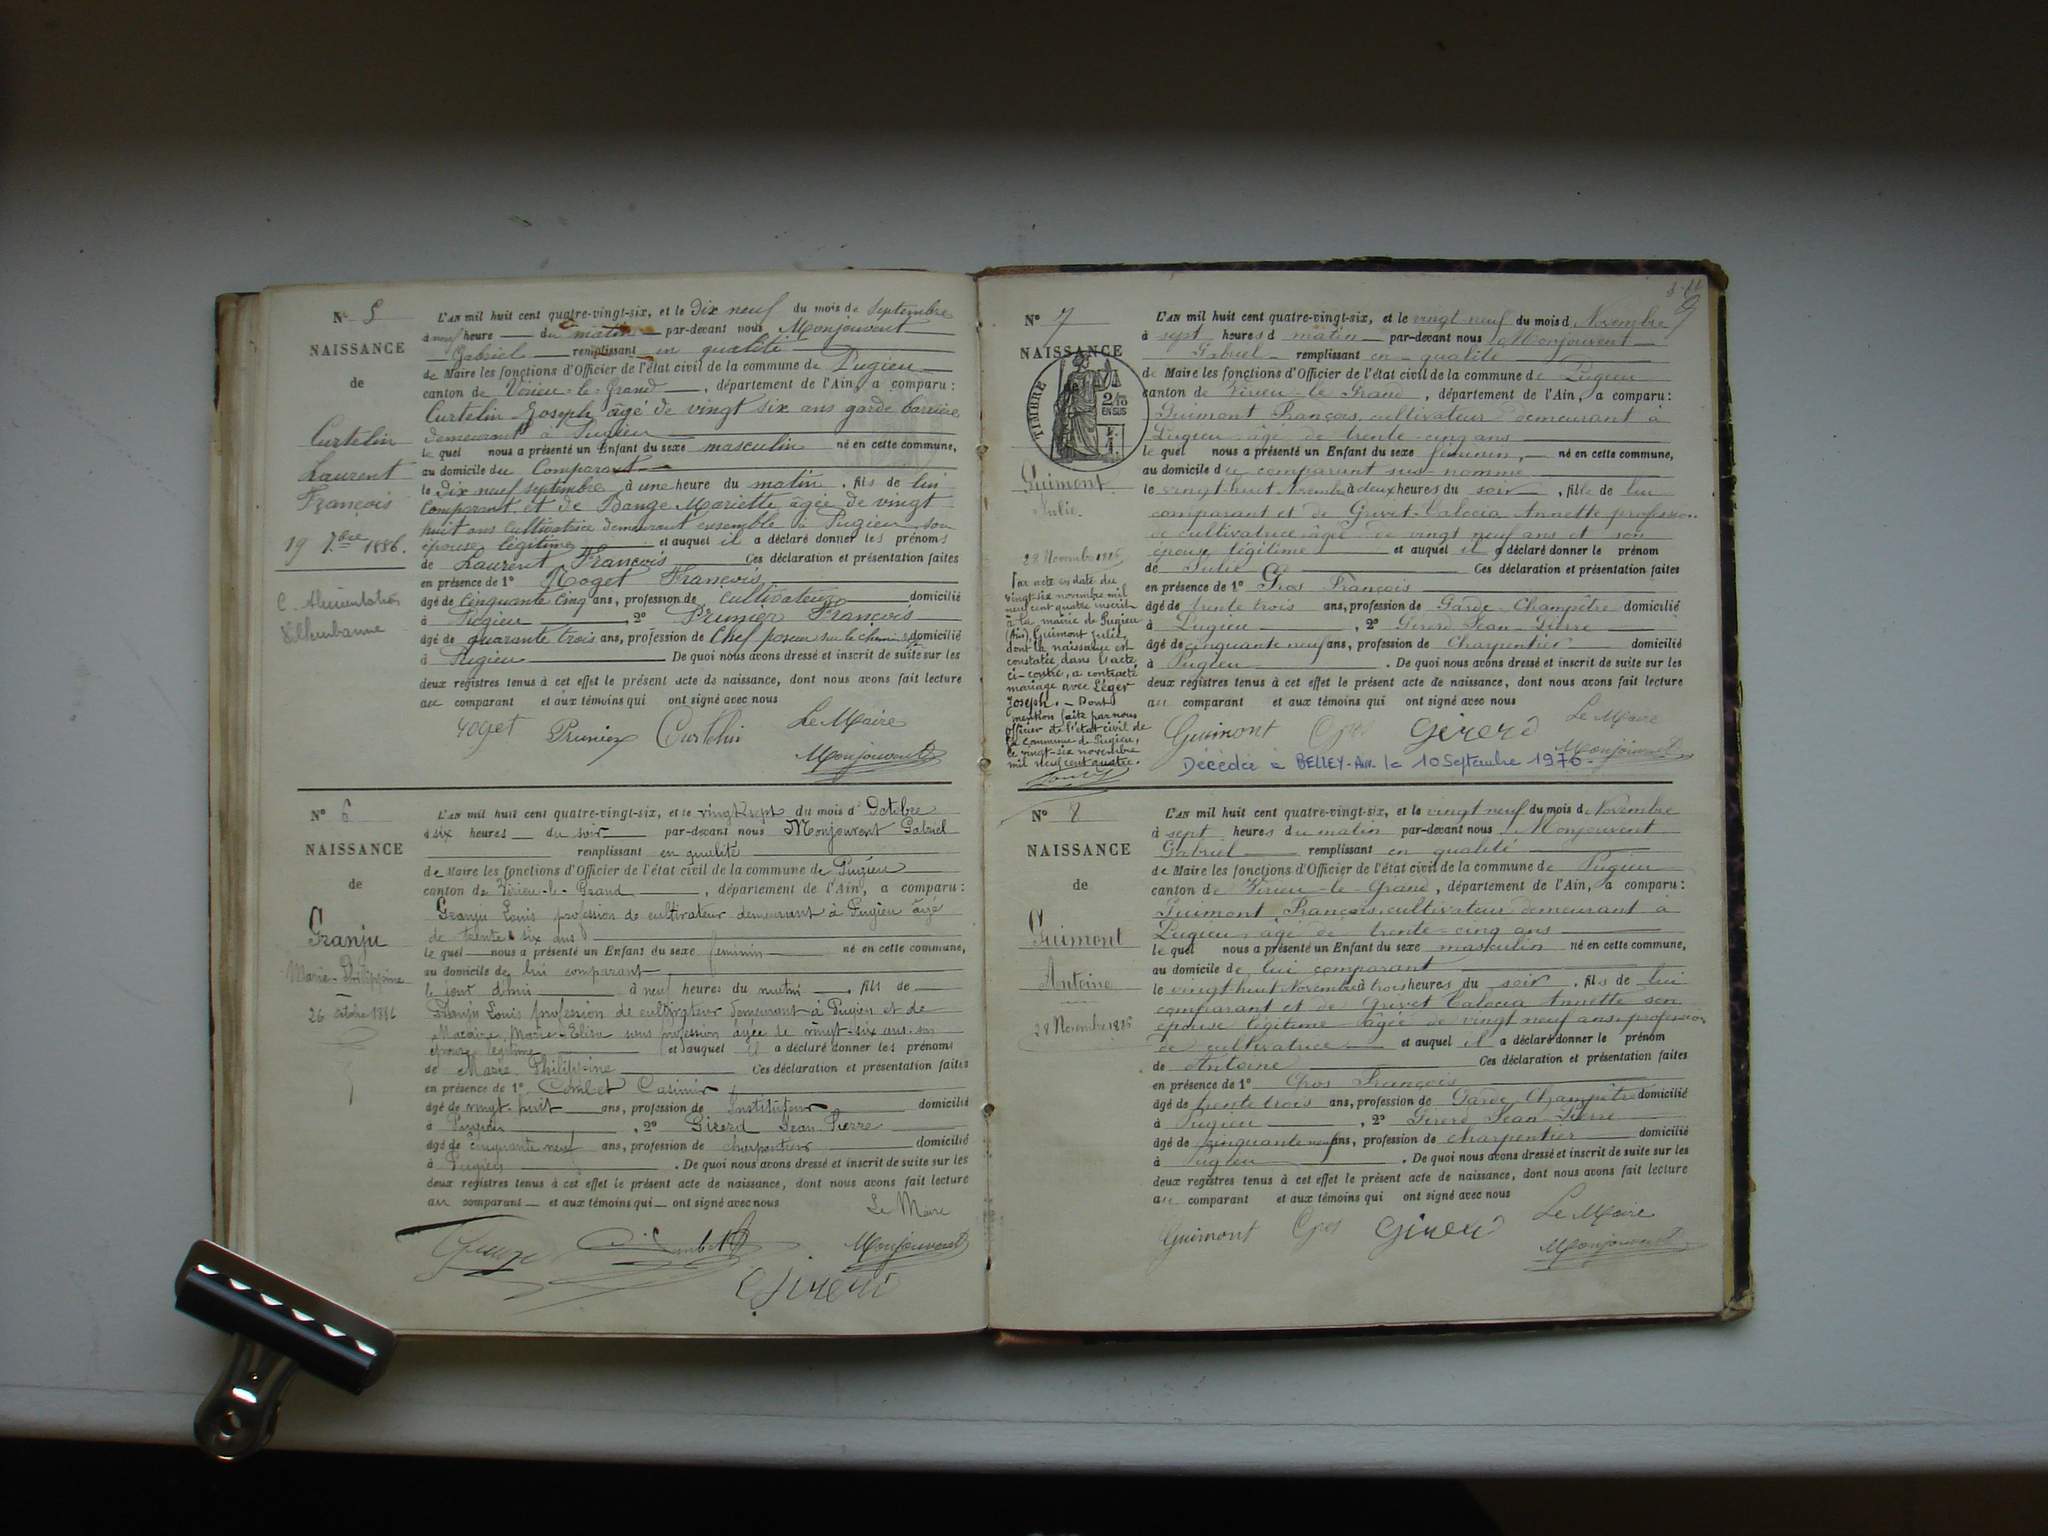 N° 5
NAISSANCE
de
Curtelin
Laurent
François
19 7bre 1886.
C. Alimentation
Villeurbanne
L'AN mil huit cent quatre-vingt-six, et le Dix neuf du mois de Septembre
à neuf heure du matin par-devant nous Monjouvent
Gabriel remplissant en qualité
de Maire les fonctions d'Officier de l'état civil de la commune de Pugieu
canton de Virieu-le-Grand, département de l'Ain, a comparu:
Curtelin Joseph âgé de vingt six ans garde barrière
demeurant à Pugieu
le quel nous a présenté un Enfant du sexe masculin né en cette commune,
au domicile du Comparant
le Dix neuf septembre à une heure du matin, fils de lui
comparant et de Bange Mariette âgée de vingt
huit ans cultivatrice demeurant ensemble à Pugieu son
épouse légitime et auquel il a déclaré donner les prénoms
de Laurent François Ces déclaration et présentation faites
en présence de 1° Roget François
âgé de cinquante cinq ans, profession de cultivateur domicilié
à Pugieu, 2° Prunier François
âgé de quarante trois ans, profession de Chef poseur sur le chemin domicilié
à Pugieu De quoi nous avons dressé et inscrit de suite sur les
deux registres tenus à cet effet le présent acte de naissance, dont nous avons fait lecture
au comparant et aux témoins qui ont signé avec nous
Roget Prunier Curtelin Le Maire
Monjouvent
N° 6
NAISSANCE
de
Granju
Marie-Philippine
26 octobre 1886
L'AN mil huit cent quatre-vingt-six, et le vingt sept du mois d'Octobre
à six heures du soir par-devant nous Monjouvent Gabriel
remplissant en qualité
de Maire les fonctions d'Officier de l'état civil de la commune de Pugieu
canton de Virieu-le-Grand, département de l'Ain, a comparu:
Granju Louis profession de cultivateur demeurant à Pugieu âgé
de trente six ans
le quel nous a présenté un Enfant du sexe féminin né en cette commune,
au domicile de lui comparant
le jour d'hier à neuf heures du matin, fils de
Granju Louis profession de cultivateur demeurant à Pugieu et de
Macaire Marie-Elisa sans profession âgée de vingt-six ans son
épouse légitime et auquel il a déclaré donner les prénoms
de Marie Philippine Ces déclaration et présentation faites
en présence de 1° Combet Casimir
âgé de vingt-huit ans, profession de Instituteur domicilié
à Pugieu, 2° Girerd Jean-Pierre
âgé de cinquante neuf ans, profession de charpentier domicilié
à Pugieu. De quoi nous avons dressé et inscrit de suite sur les
deux registres tenus à cet effet le présent acte de naissance, dont nous avons fait lecture
au comparant et aux témoins qui ont signé avec nous
Le Maire
Combet Monjouvent
Girerd
9
N° 7
NAISSANCE
TIMBRE
2/10
EN SUS
Guimont
Julie.
28 Novembre 1886
Par acte en date du
vingt-six novembre mil
neuf cent quatre inscrit
à la mairie de Pugieu
(Ain), Guimont Julie,
dont la naissance est
constatée dans l'acte
ci-contre, a contracté
mariage avec Léger
Joseph. — Dont
mention faite par nous
officier de l'état civil de
la commune de Pugieu,
le vingt-six novembre
mil neuf cent quatre.
L'AN mil huit cent quatre-vingt-six, et le vingt-neuf du mois d Novembre
à sept heures d matin par-devant nous Monjouvent
Gabriel remplissant en qualité
de Maire les fonctions d'Officier de l'état civil de la commune de Pugieu
canton de Virieu-le-Grand, département de l'Ain, a comparu:
Guimont François, cultivateur demeurant à
Pugieu âgé de trente-cinq ans
le quel nous a présenté un Enfant du sexe féminin, né en cette commune,
au domicile du comparant sus-nommé
le vingt-huit Novembre à deux heures du soir, fille de lui
comparant et de Grivet-Talocia Annette profession
de cultivatrice âgée de vingt neuf ans et son
épouse légitime et auquel il a déclaré donner le prénom
de Julie Ces déclaration et présentation faites
en présence de 1° Gros François
âgé de trente trois ans, profession de Garde-Champêtre domicilié
à Pugieu, 2° Girerd Jean-Pierre
âgé de cinquante neuf ans, profession de Charpentier domicilié
à Pugieu. De quoi nous avons dressé et inscrit de suite sur les
deux registres tenus à cet effet le présent acte de naissance, dont nous avons fait lecture
au comparant et aux témoins qui ont signé avec nous
Guimont Gros Girerd Le Maire
Monjouvent
Décédée à BELLEY-Ain le 10 Septembre 1976.
N° 8
NAISSANCE
de
Guimont
Antoine
28 Novembre 1886
L'AN mil huit cent quatre-vingt-six, et le vingt neuf du mois d Novembre
à sept heures du matin par-devant nous Monjouvent
Gabriel remplissant en qualité
de Maire les fonctions d'Officier de l'état civil de la commune de Pugieu
canton de Virieu-le-Grand, département de l'Ain, a comparu:
Guimont François, cultivateur demeurant à
Pugieu, âgé de trente-cinq ans
le quel nous a présenté un Enfant du sexe masculin né en cette commune,
au domicile de lui comparant
le vingt huit Novembre à trois heures du soir, fils de lui
comparant et de Grivet Talocia Annette son
épouse légitime âgée de vingt neuf ans, profession
de cultivatrice et auquel il a déclaré donner le prénom
de Antoine Ces déclaration et présentation faites
en présence de 1° Gros François
âgé de trente trois ans, profession de Garde Champêtre domicilié
à Pugieu, 2° Girerd Jean-Pierre
âgé de cinquante neuf ans, profession de charpentier domicilié
à Pugieu. De quoi nous avons dressé et inscrit de suite sur les
deux registres tenus à cet effet le présent acte de naissance, dont nous avons fait lecture
au comparant et aux témoins qui ont signé avec nous
Guimont Gros Girerd Le Maire
Monjouvent